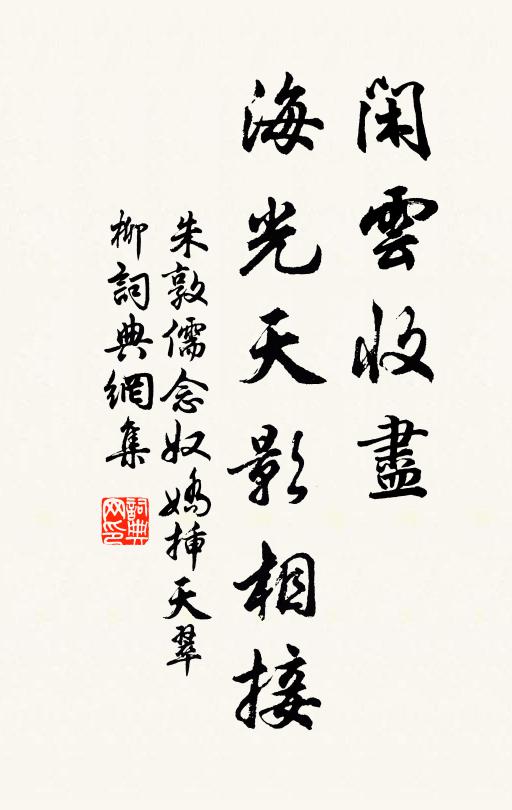 閑雲收盡
海光天影相接
朱敦儒念奴嬌插天翠
柳詞典網集
詞典
网印